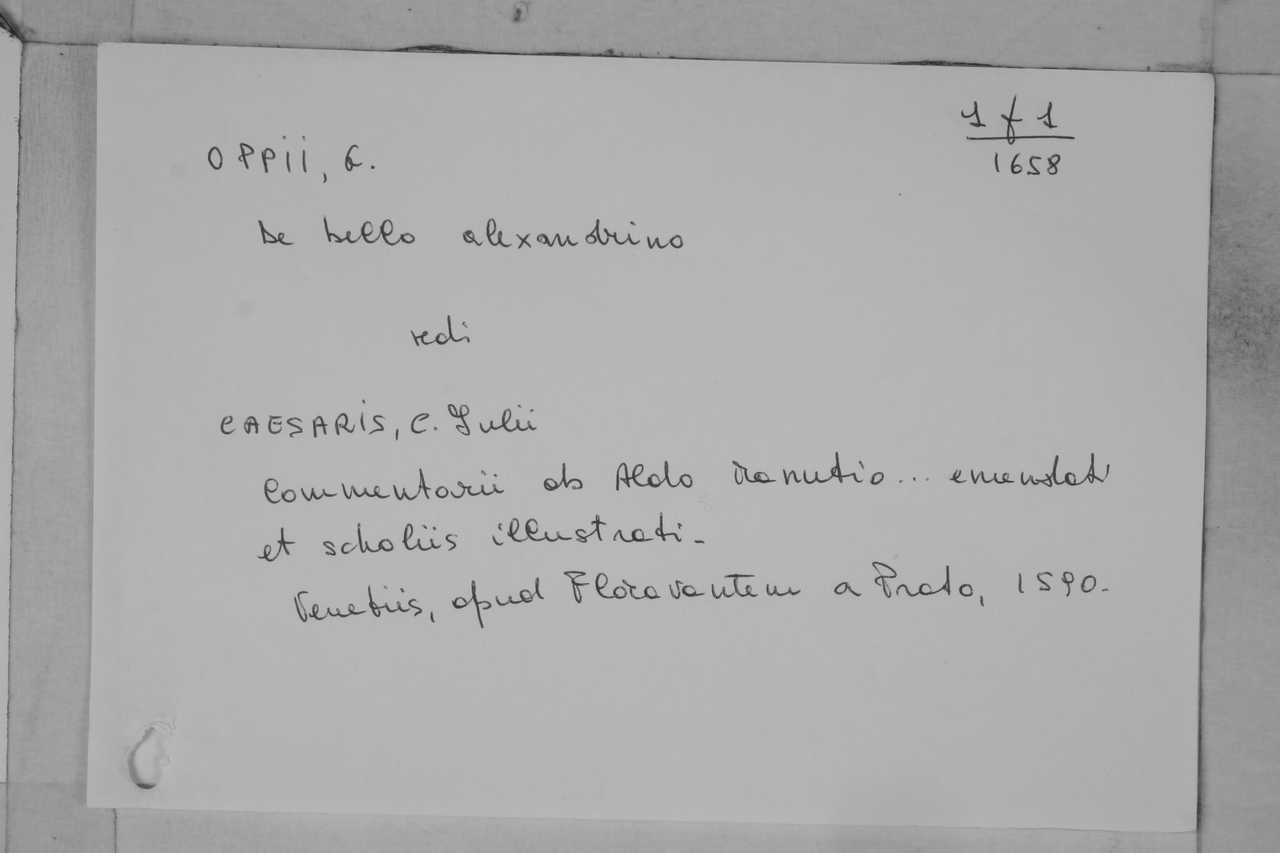 1 f 1
1658
OPPii, G.
De bello alexandrino
vedi
CAESARiS, C. Iulii
Commentarii ab Aldo Manutio... emendati
et scholiis illustrati.
Venetiis, apud Floravantem a Prato, 1590.